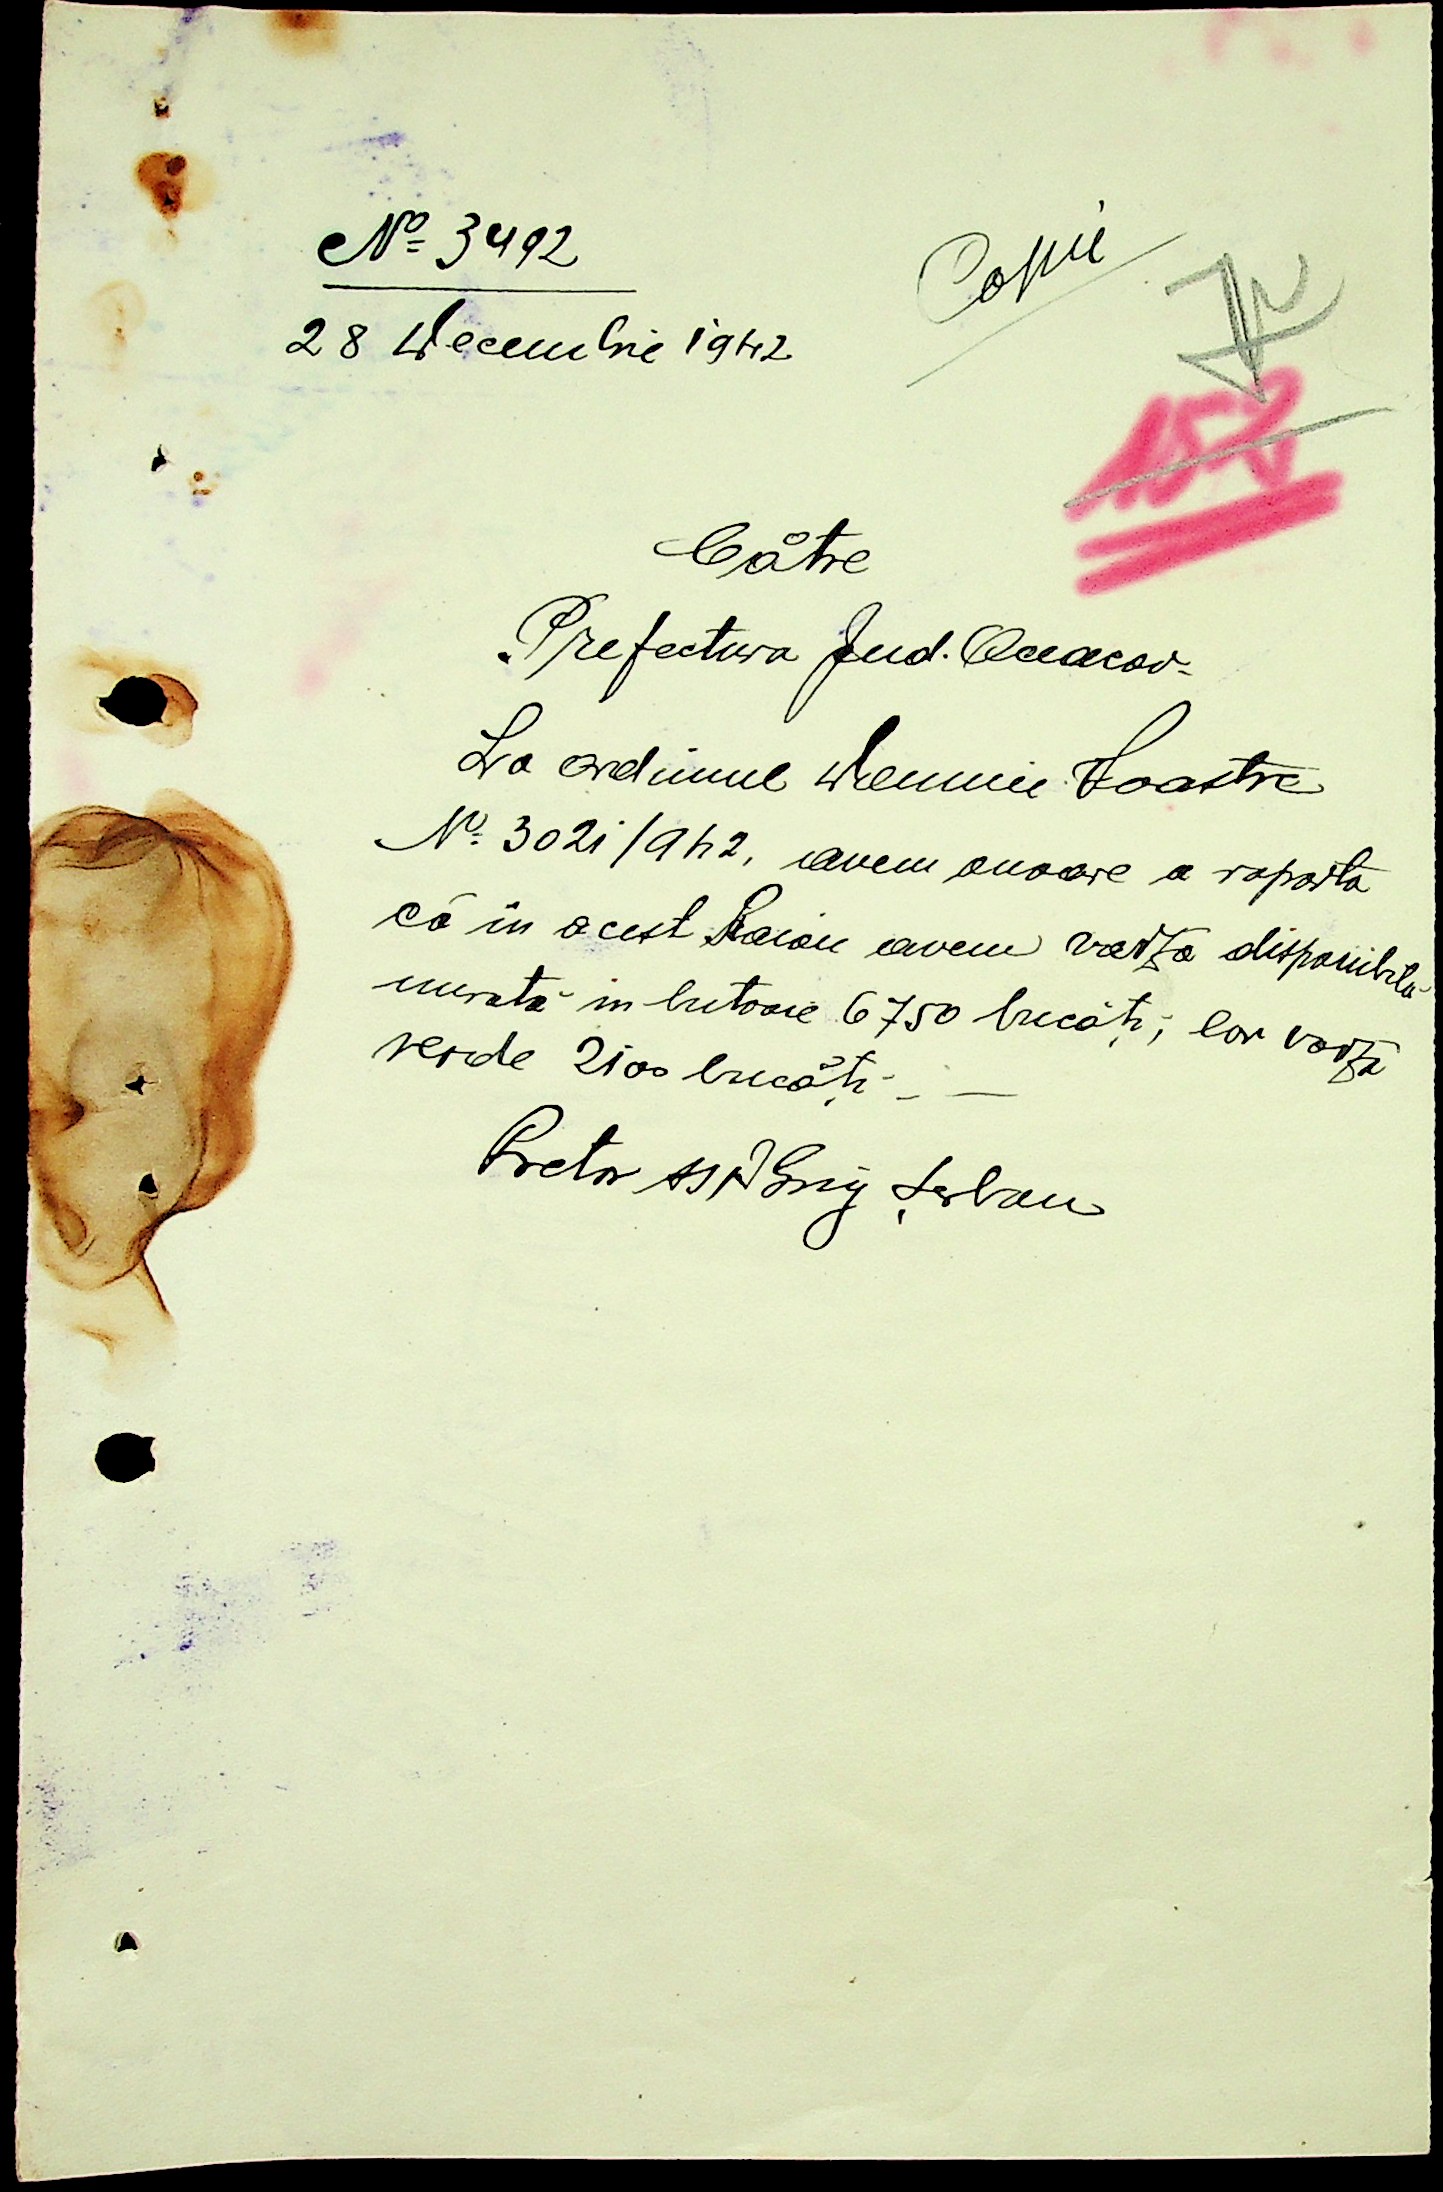 No 3492
28 Decembrie 1942
Copie
152
Către
Prefectura Jud. Oceacov
La ordinul Domniei Voastre
No. 3021/942, avem onoare a raporta
că în acest Raion avem varză disponibilă
murată in butoaie 6750 bucăți, iar varză
verde 2100 bucăți. —
Pretor ss) Grig Șerban